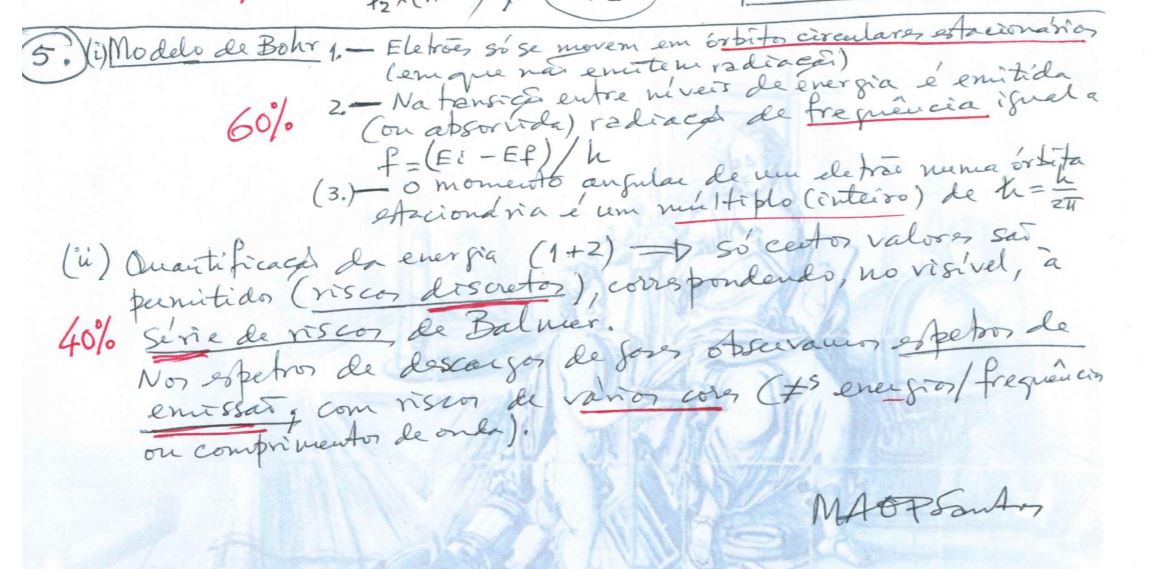 5. (i) Modelo de Bohr 1.— Eletrões só se movem em órbitas circulares estacionárias
(em que não emitem radiação)
60% 2.— Na transição entre níveis de energia é emitida
(ou absorvida) radiação de frequência igual a
f = (Ei - Ef)/h
(3.)— O momento angular de um eletrão numa órbita
estacionária é um múltiplo (inteiro) de ħ = h/2π
(ii) Quantificação da energia (1+2) ⇒ só certos valores são
permitidos (riscos discretos), correspondendo, no visível, à
40% série de riscos de Balmer.
Nos espetros de descargas de gases observamos espetros de
emissão, com riscos de várias cores (≠s energias/frequências
ou comprimentos de onda).
MAOPSantos